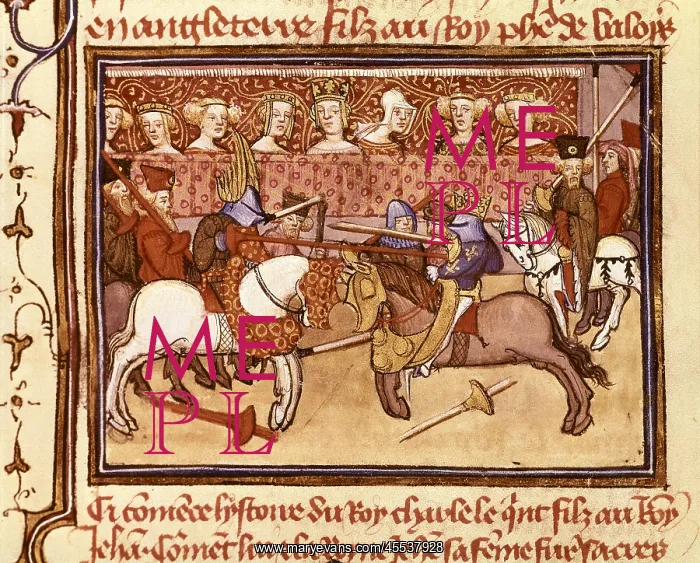 en angleterre filz au Roy phē de valoys
ME
PL
ME
PL
Ci cōmēce lystoire du Roy charle le q̄nt filz au Roy
Jehā. Cōmēt
sa fēme fur sacres
www.maryevans.com/45537928